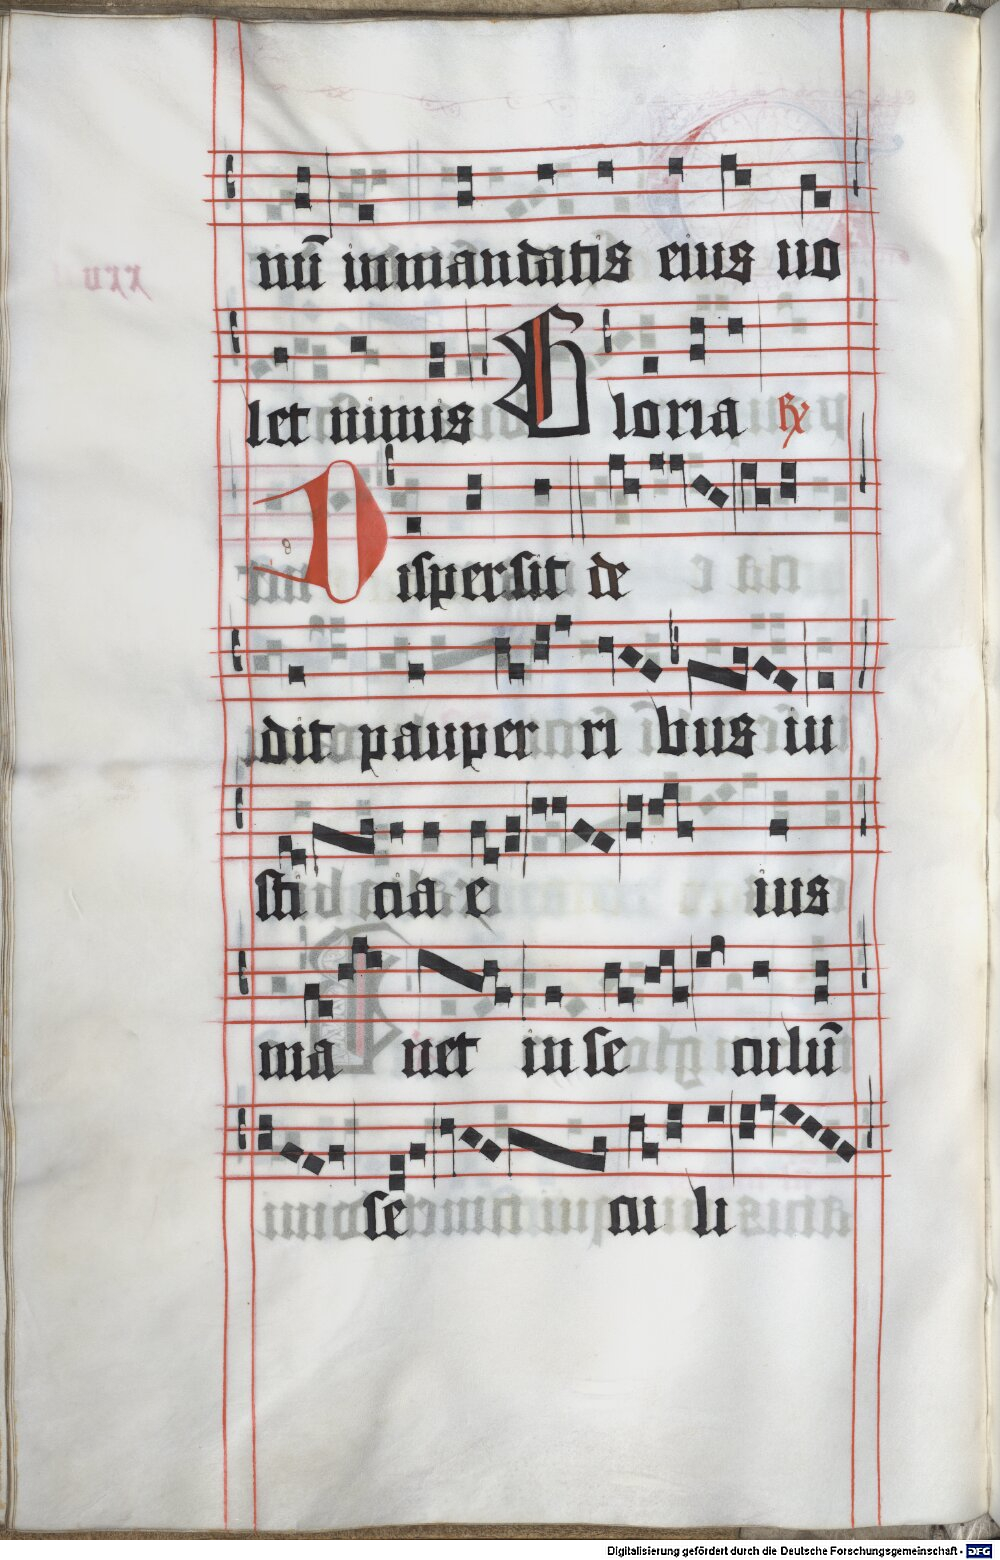 nū in mandatis eius uo
let nimis Gloria
Dispersit de
dit pauper ri bus iu
sti cia e ius
ma net in se culū
se cu li
Digitalisierung gefördert durch die Deutsche Forschungsgemeinschaft - DFG